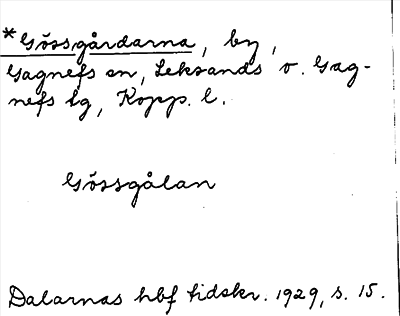 *Gössgårdarna, by,
Gagnefs sn, Leksands o. Gag-
nefs tg, Kopp. l.
Gössgålan
Dalarnas hbf tidskr. 1929, s. 15.